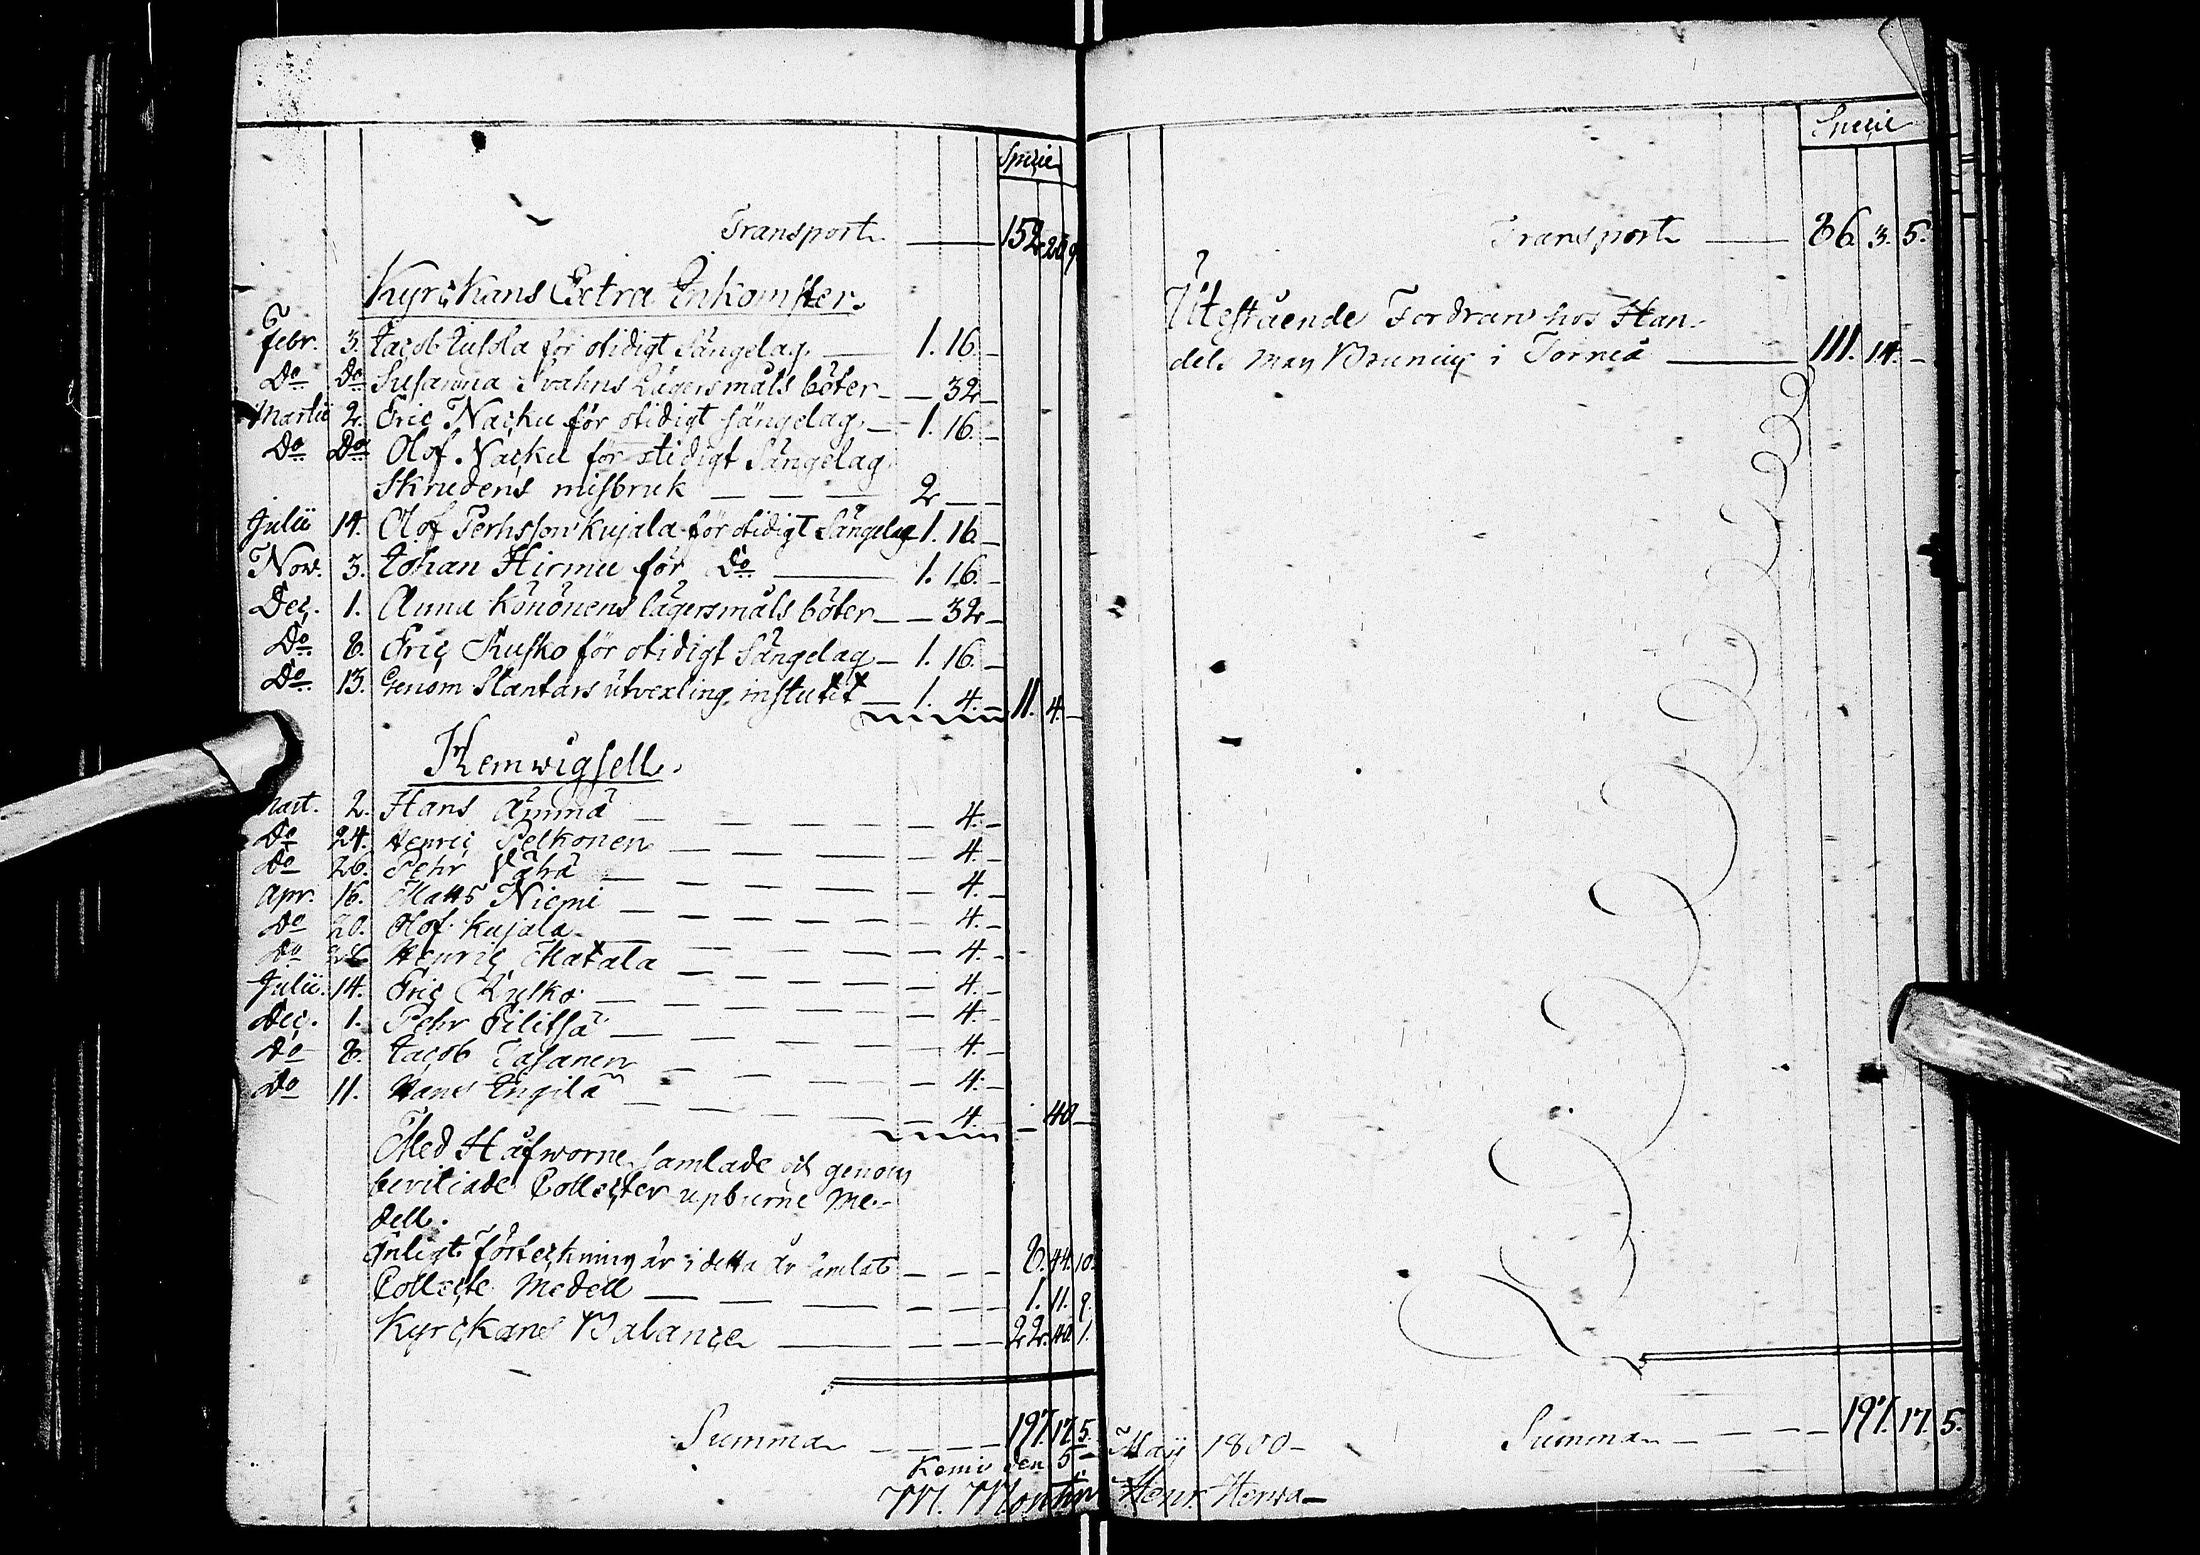 Specie
Transport 152. 20. 9.
Kyrckans Extra Inkomster.
Febr. 3. Jacob Jussla för otidigt Sängelag. 1. 16.
Do Do Susanna Svahns Lägersmåls böter 32
Martii 2. Eric Nacku för otidigt sängelag 1. 16.
Do Do Olof Nacku för otidigt Sängelag
Skrudens misbruk 2
Julii 14. Olof Pehrsson Kujala för otidigt Sängelag 1. 16.
Nov. 3. Johan Hirmu för Do 1. 16.
Dec. 1. Anna Könönens lägersmåls böter 32
Do 8. Eric Kusko för otidigt Sängelag 1. 16.
Do 13. Genom Slantars utvexling, influtit 1. 4. 11. 4.
Hemwigsell.
Mart. 2. Hans Ämmä 4.
Do 24. Henric Pelkonen 4.
Do 26. Pehr Vähä 4.
Apr. 16. Matts Niemi 4.
Do 20. Olof Kujala 4.
Do Henric Matala 4.
Julii. 14. Eric Kusko 4.
Dec. 1. Pehr Pilitsä 4.
Do 8. Jacob Tasanen 4.
Do 11. Hans Engilä 4. 40
Med Håfworne samlade och genom
beviliade Collecter upburne Me-
dell.
Enligt förteckning är i detta år samlat 8. 44. 10.
Collecte Medell 1. 11. 9.
Kyrckans Balance 22. 40. 1.
Summa 197. 17. 5.
Kemi den 5
M. Montin
Specie
Transport 86. 3. 5.
Utestående Fordran hos Han-
dels man Brunius i Torneå 111. 14.
Summa 197. 17. 5.
Maij 1800
Henr. Herva